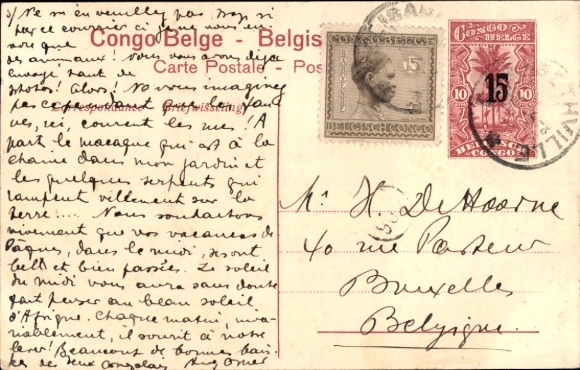 5/ Ne m'en veuillez pas, trop, si
par ce courrier ci je ne vous en-
voie que
des animaux! Nous vous avons déjà
envoyé tant de
photos! Alors! Ne vous imaginez
pas cependant que les fauves,
ici, courent les rues! A
part le macaque qui est à la
chaîne dans mon jardin et
les quelques serpents qui
rampent vilement sur la
terre.... Nous souhaitons
vivement que vos vacances de
Pâques, dans le midi, se sont
bel et bien passées. Le soleil
du midi vous aura sans doute
fait penser au beau soleil
d'Afrique. Chaque matin, inva-
riablement, il sourit à notre
lever! Beaucoup de bonnes bai-
ses de deux Congolais
Congo Belge - Belgis
Carte Postale - Pos
Correspondance Briefwisseling
CONGO BELGE
15
BELGISCH CONGO
CONGO
BELGE
15
10 10
BELGISCH
CONGO
THVILLE
Mr H. De Hoorne
40 rue Pasteur
Bruxelles
Belgique.